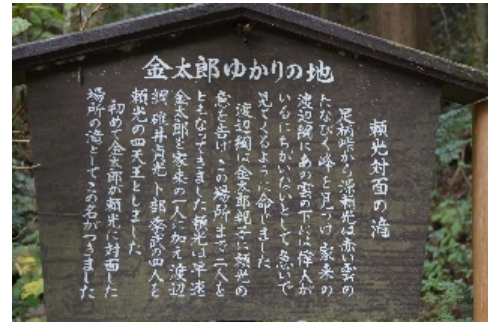 金太郎ゆかりの地
頼光対面の滝
足柄峠から源頼光は赤い雲の
たなびく峰を見つけ家来の
渡辺綱にあの雲の下には偉人が
いるにちがいないとして急いで
見てくるように命じました
渡辺綱は金太郎親子に頼光の
意を告げこの場所まで二人を
ともなってきました頼光は早速
金太郎を家来の一人に加え渡辺
綱碓井貞光卜部季武の四人を
頼光の四天王としました
初めて金太郎が頼光に対面した
場所の滝としてこの名がつきました